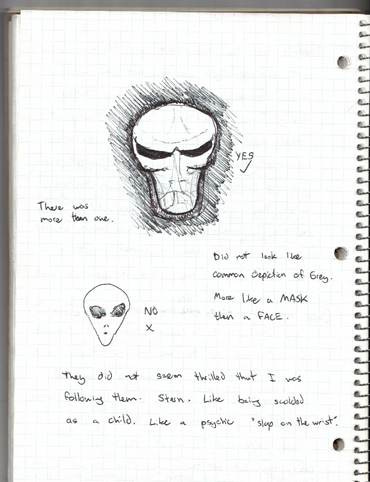 YES
There was
more than one.
Did not look like
common depiction of Grey.
More like a MASK
then a FACE.
NO
X
They did not seem thrilled that I was
following them. Stern. Like being scolded
as a child. Like a psychic "slap on the wrist".